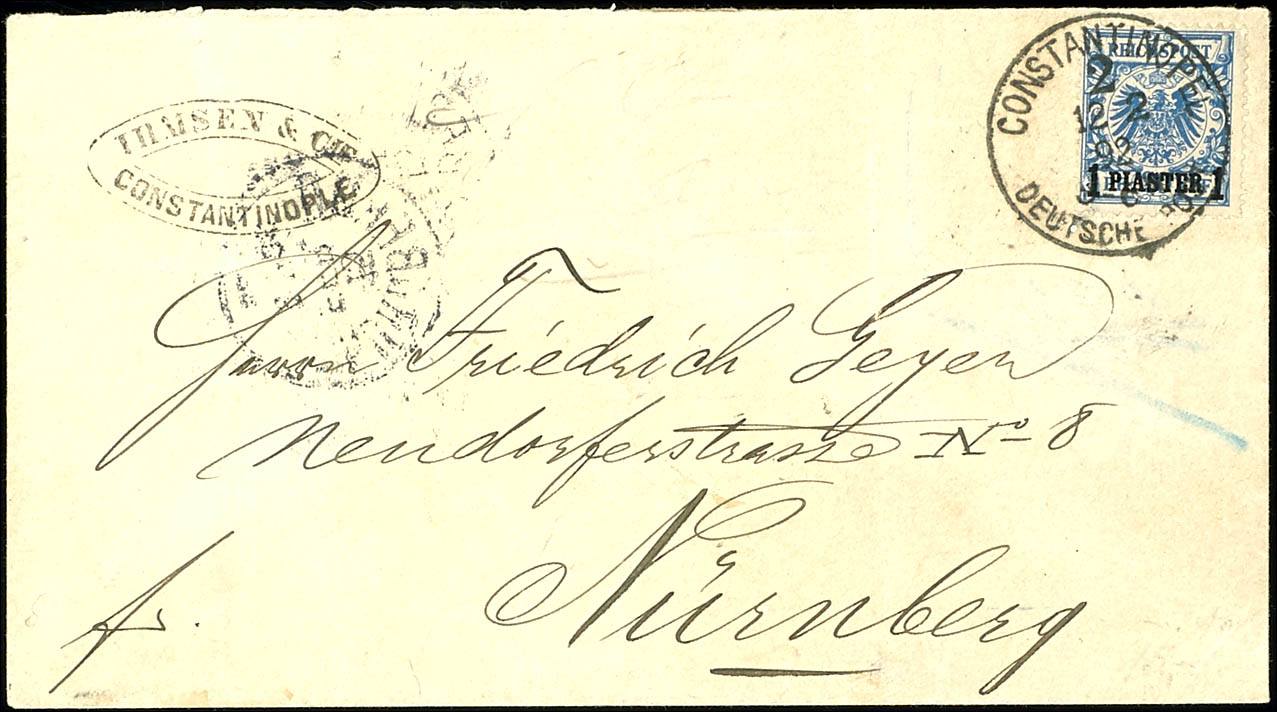 IHMSEN & CIE
CONSTANTINOPLE
CONSTANTINOPEL
2
12 2
92
DEUTSCHE
REICHSPOST
1 PIASTER 1
Herrn Friedrich Geyer
Neudörferstrasse No 8
fr.
Nürnberg